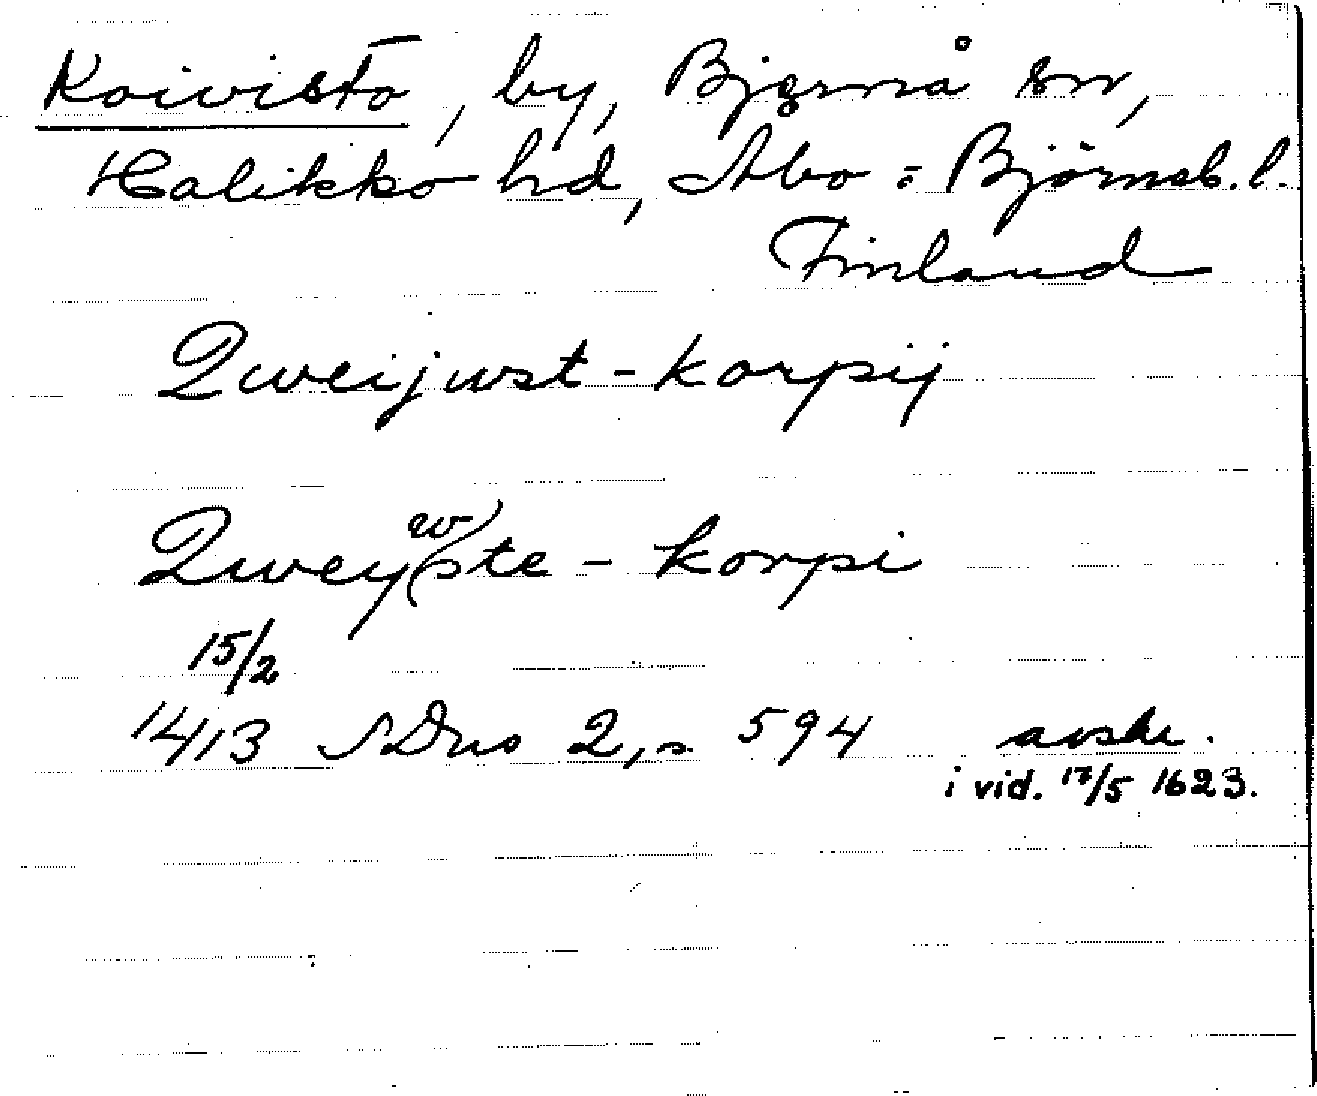 Koivisto, by, Bjärnå sn,
Halikko hd, Åbo = Björneb. l.
Finland
Qweijwst - korpij
Qwey(w)ste - korpi
15/2
1413 SDns 2, s 594 avskr.
i vid. 17/5 1623.